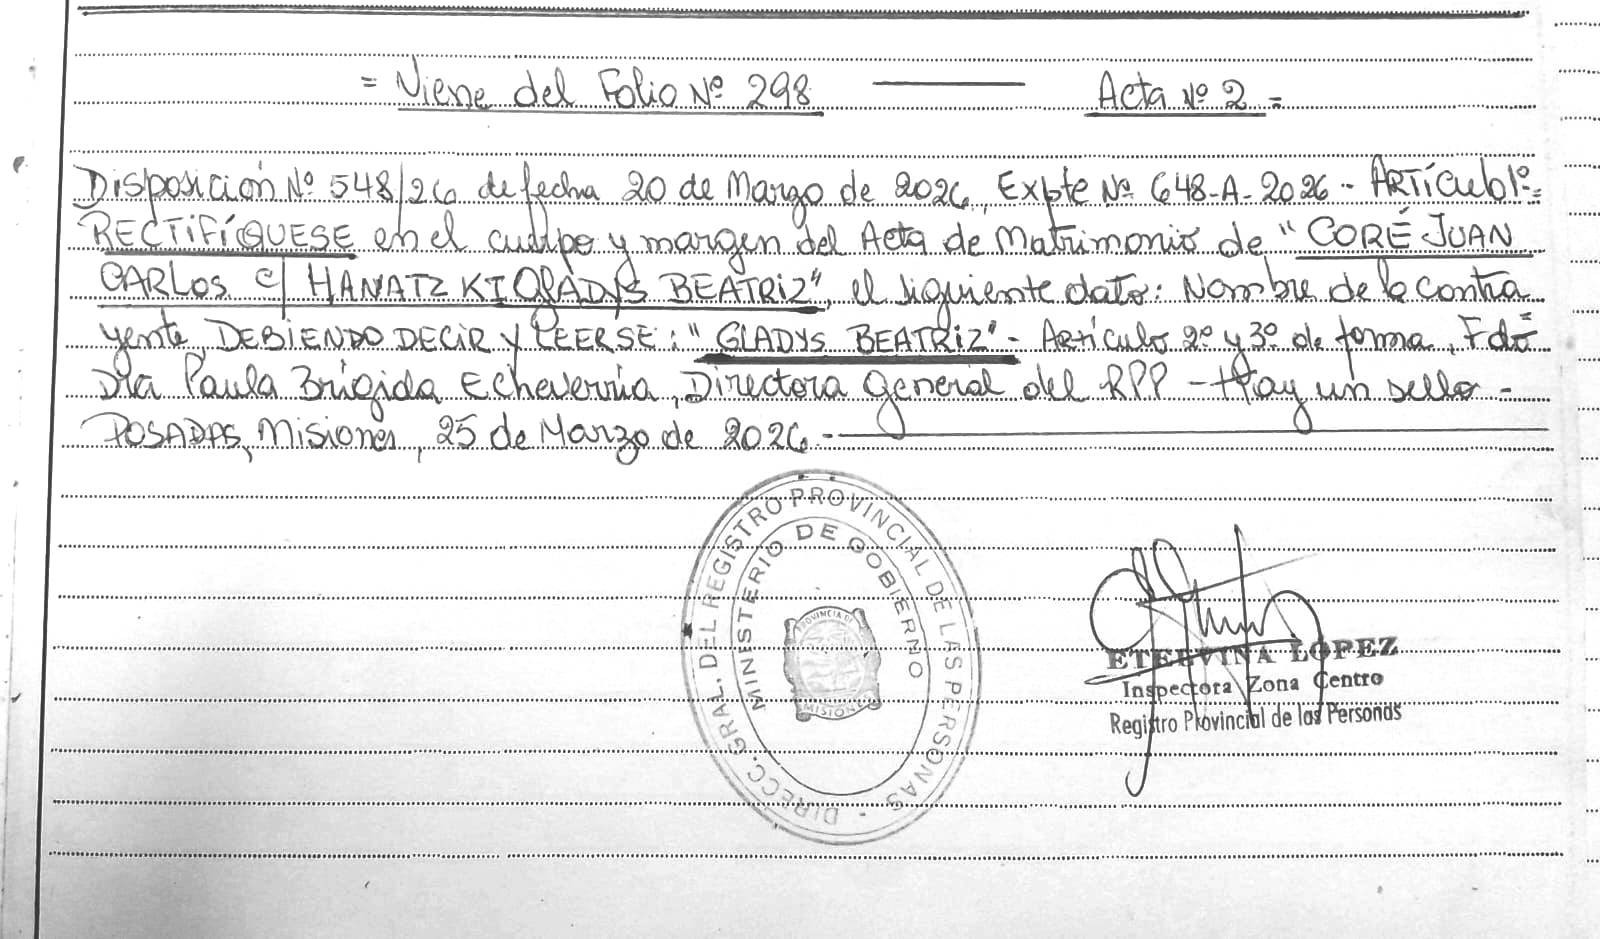 = Viene del Folio Nº 298 ——— Acta Nº 2 =
Disposición Nº 548/26 de fecha 20 de Marzo de 2026, Expte Nº 648-A-2026 - ARTÍCULO 1º=
RECTIFÍQUESE en el cuerpo y margen del Acta de Matrimonio de "CORÉ JUAN
CARLOS c/ HANATZKI GLADYS BEATRIZ", el siguiente dato: Nombre de la contra
yente, DEBIENDO DECIR y LEERSE: "GLADYS BEATRIZ" - Artículo 2º y 3º de forma, Fdo=
Dra Paula Brigida Echeverria, Directora General del RPP - Hay un sello -
POSADAS, Misiones, 25 de Marzo de 2026.-
DIRECC. GRAL. DEL REGISTRO PROVINCIAL DE LAS PERSONAS -
MINISTERIO DE GOBIERNO
PROVINCIA DE
MISIONES
ETELVINA LOPEZ
Inspectora Zona Centro
Registro Provincial de las Personas